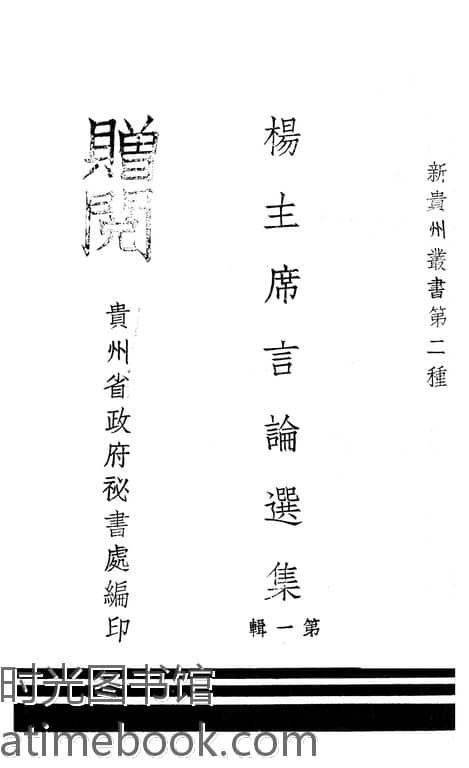 新貴州叢書第二種
楊主席言論選集
第一輯
贈閱
貴州省政府祕書處編印
时光图书馆
atimebook.com